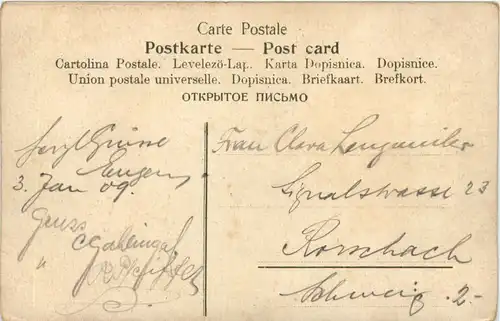 Carte Postale
Postkarte — Post card
Cartolina Postale. Levelezö-Lap. Karta Dopisnica. Dopisnice.
Union postale universelle. Dopisnica. Briefkaart. Brefkort.
ОТКРЫТОЕ ПИСЬМО
Herzl Grüsse
Eugen
3. Jan 09.
Gruss
"
Frau Clara
Signalstrasse 23
Rorschach
Schweiz . 2.-